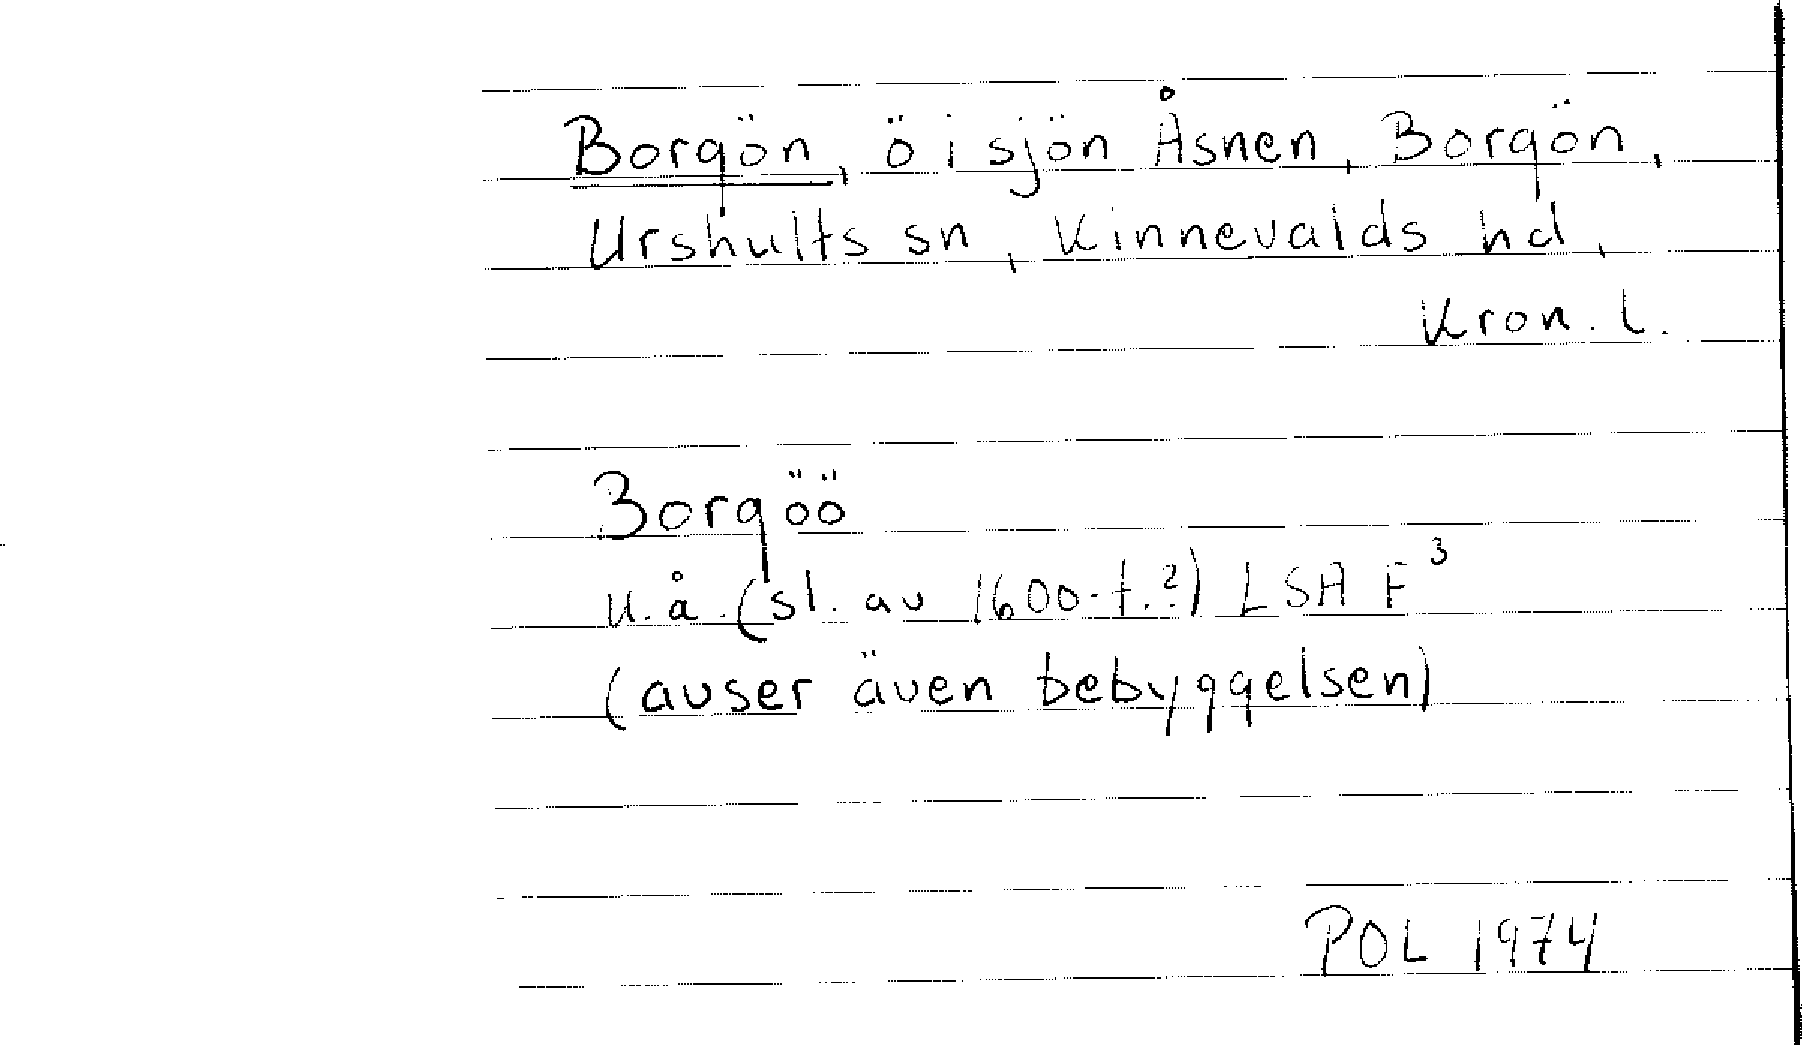 Borgön, ö i sjön Åsnen, Borgön,
Urshults sn, Kinnevalds hd,
Kron. l.
Borgöö
u.å. (sl. av 1600-t.?) LSA F³
(avser även bebyggelsen)
POL 1974